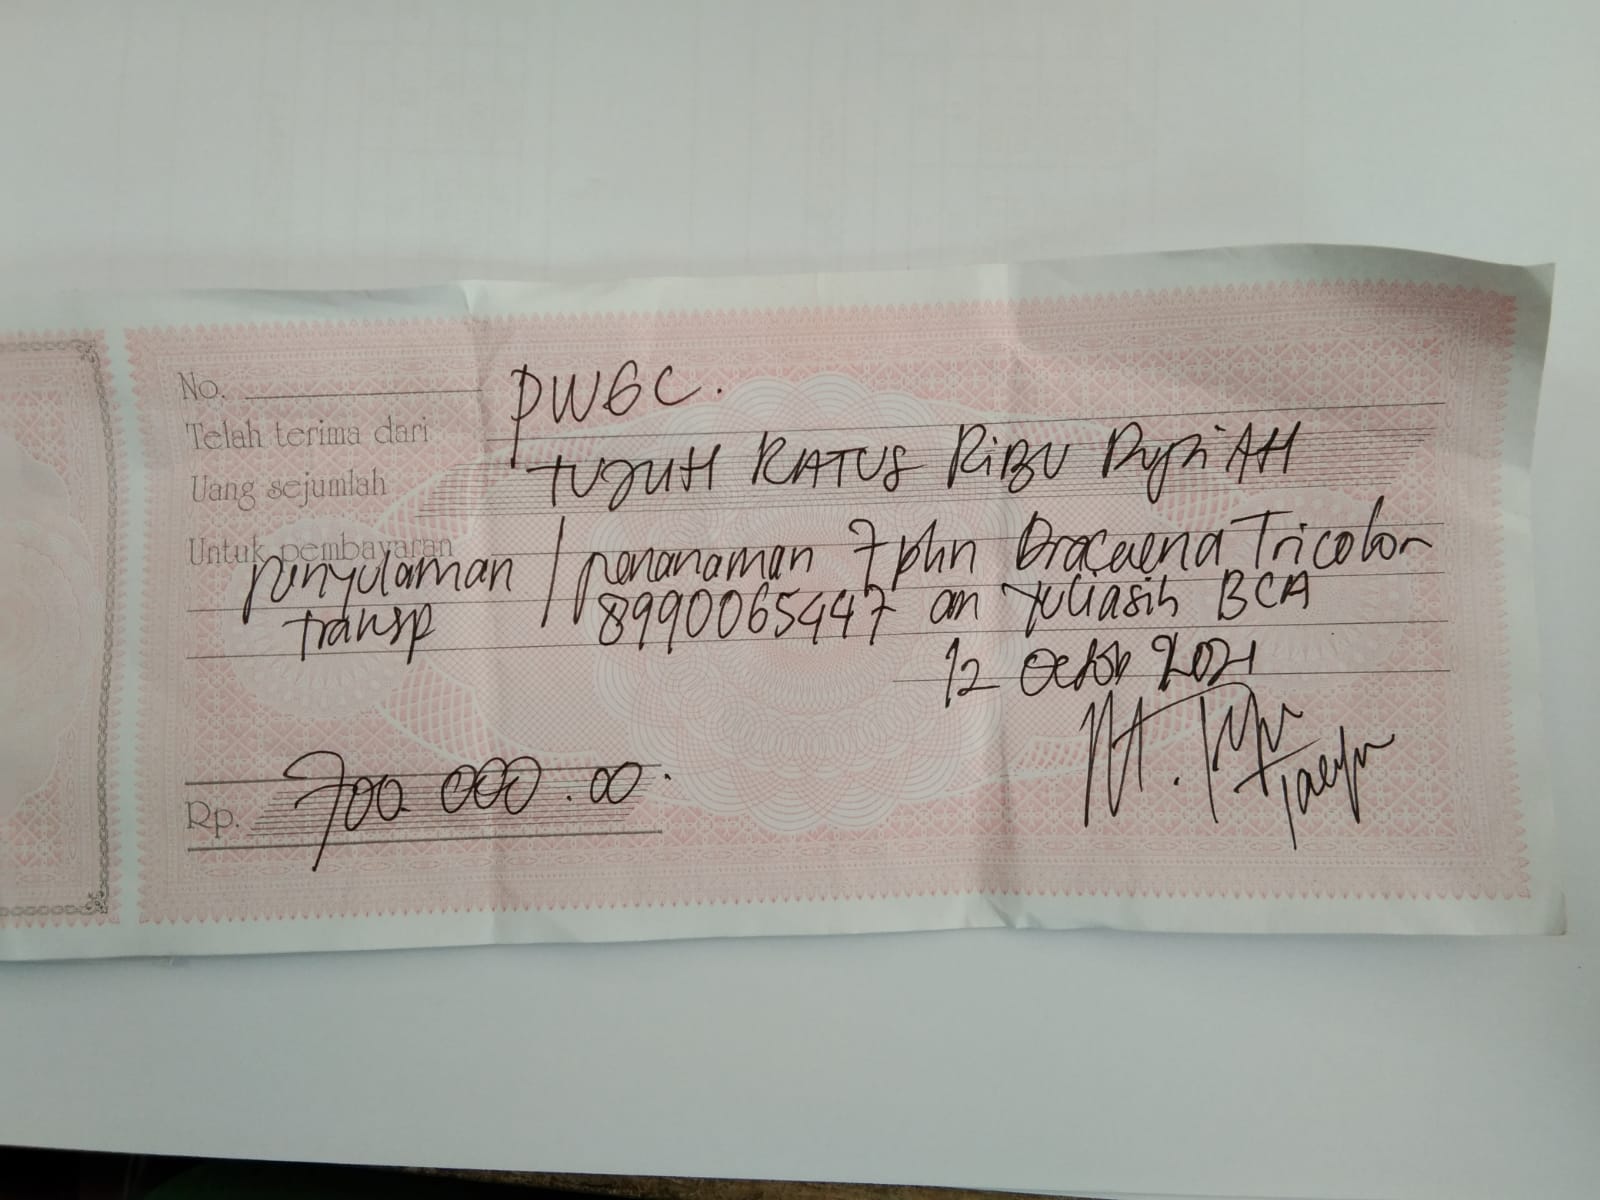 No.
Telah terima dari PWGC.
Uang sejumlah TUJUH RATUS RiBU RupiAH
Untuk pembayaran
penyulaman / penanaman 7 phn Dracaena Tricolor
transp 8990065447 an Yuliasih BCA
12 Octob 2021
Rp. 700.000.00.